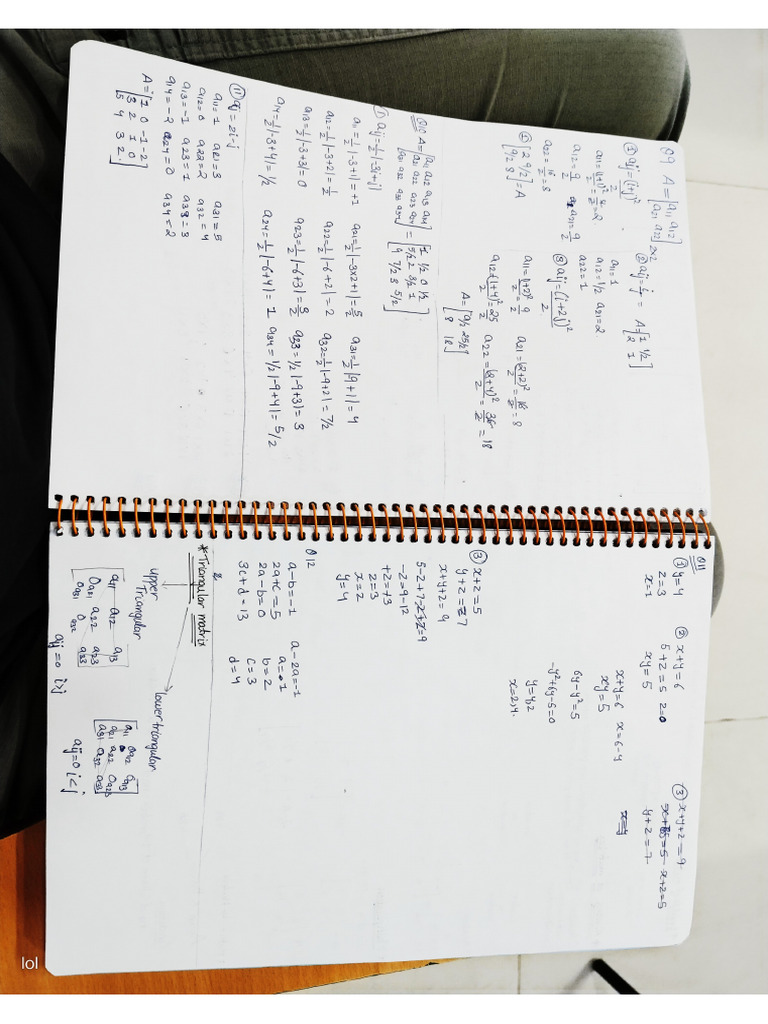 Q9 A = [a11 a12
a21 a22] 2x2
① aij = (i+j)²
2
a11 = (1+1)² = 2
2
a12 = 9
2
a21 = 9
2
a22 = 16 = 8
2
[2 9/2
9/2 8] = A
② aij = i/j
A = [1 1/2
2 1]
a11 = 1
a12 = 1/2 a21 = 2
a22 = 1
③ aij = (i+2j)²
2
a11 = (1+2)² = 9
2 2
a21 = (2+2)² = 16 = 8
2 2
a12 = (1+4)² = 25
2 2
a22 = (2+4)² = 36 = 18
2 2
A = [9/2 25/2
8 18]
Q10 A = [a11 a12 a13 a14
a21 a22 a23 a24
a31 a32 a33 a34] = [1 1/2 0 1/2
5/2 2 3/2 1
9 7/2 3 5/2]
① aij = 1/2 |-3i+j|
a11 = 1/2 |-3+1| = +1 a21 = 1/2 |-3x2+1| = 5/2 a31 = 1/2 |9+1| = 4
a12 = 1/2 |-3+2| = 1/2 a22 = 1/2 |-6+2| = 2 a32 = 1/2 |-9+2| = 7/2
a13 = 1/2 |-3+3| = 0 a23 = 1/2 |-6+3| = 3/2 a33 = 1/2 |-9+3| = 3
a14 = 1/2 |-3+4| = 1/2 a24 = 1/2 |-6+4| = 1 a34 = 1/2 |-9+4| = 5/2
⑪ aij = 2i-j
a11 = 1 a21 = 3 a31 = 5
a12 = 0 a22 = 2 a32 = 4
a13 = -1 a23 = 1 a33 = 3
a14 = -2 a24 = 0 a34 = 2
A = [1 0 -1 -2
3 2 1 0
5 4 3 2]
Q11
① y = 4
z = 3
x = 1
② x+y = 6
5+z = 5 z=0
xy = 5
x+y = 6 x = 6-y
xy = 5
6y-y² = 5
-y²+6y-5 = 0
y = 4,2
x = 2,4
③ x+y+z = 9
x+z = 5
y+z = 7
x=4
③ x+z = 5
y+z = 7
x+y+z = 9
5-z+7-z+z = 9
-z = 9-12
+z = +3
z = 3
x = 2
y = 4
Q12
a-b = -1 a-2a = -1
2a+c = 5 a = 1
2a-b = 0 b = 2
3c+d = 13 c = 3
d = 4
* Triangular matrix
upper Triangular
a11 a12 a13
0a21 a22 a23
0a31 0a32 a33
aij = 0 i>j
lower triangular
a11 0a12 0a13
a21 a22 0a23
a31 a32 a33
aij = 0 i<j
lol